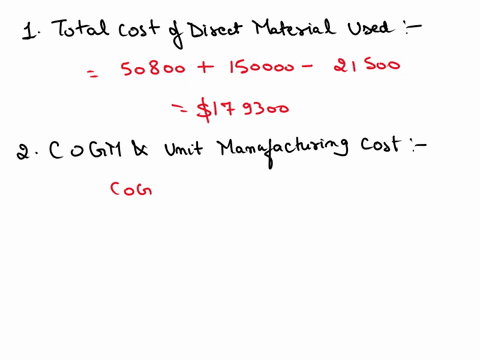 1. Total Cost of Direct Material Used :-
= 50800 + 150000 - 21500
= $179300
2. COGM & Unit Manufacturing Cost :-
COG